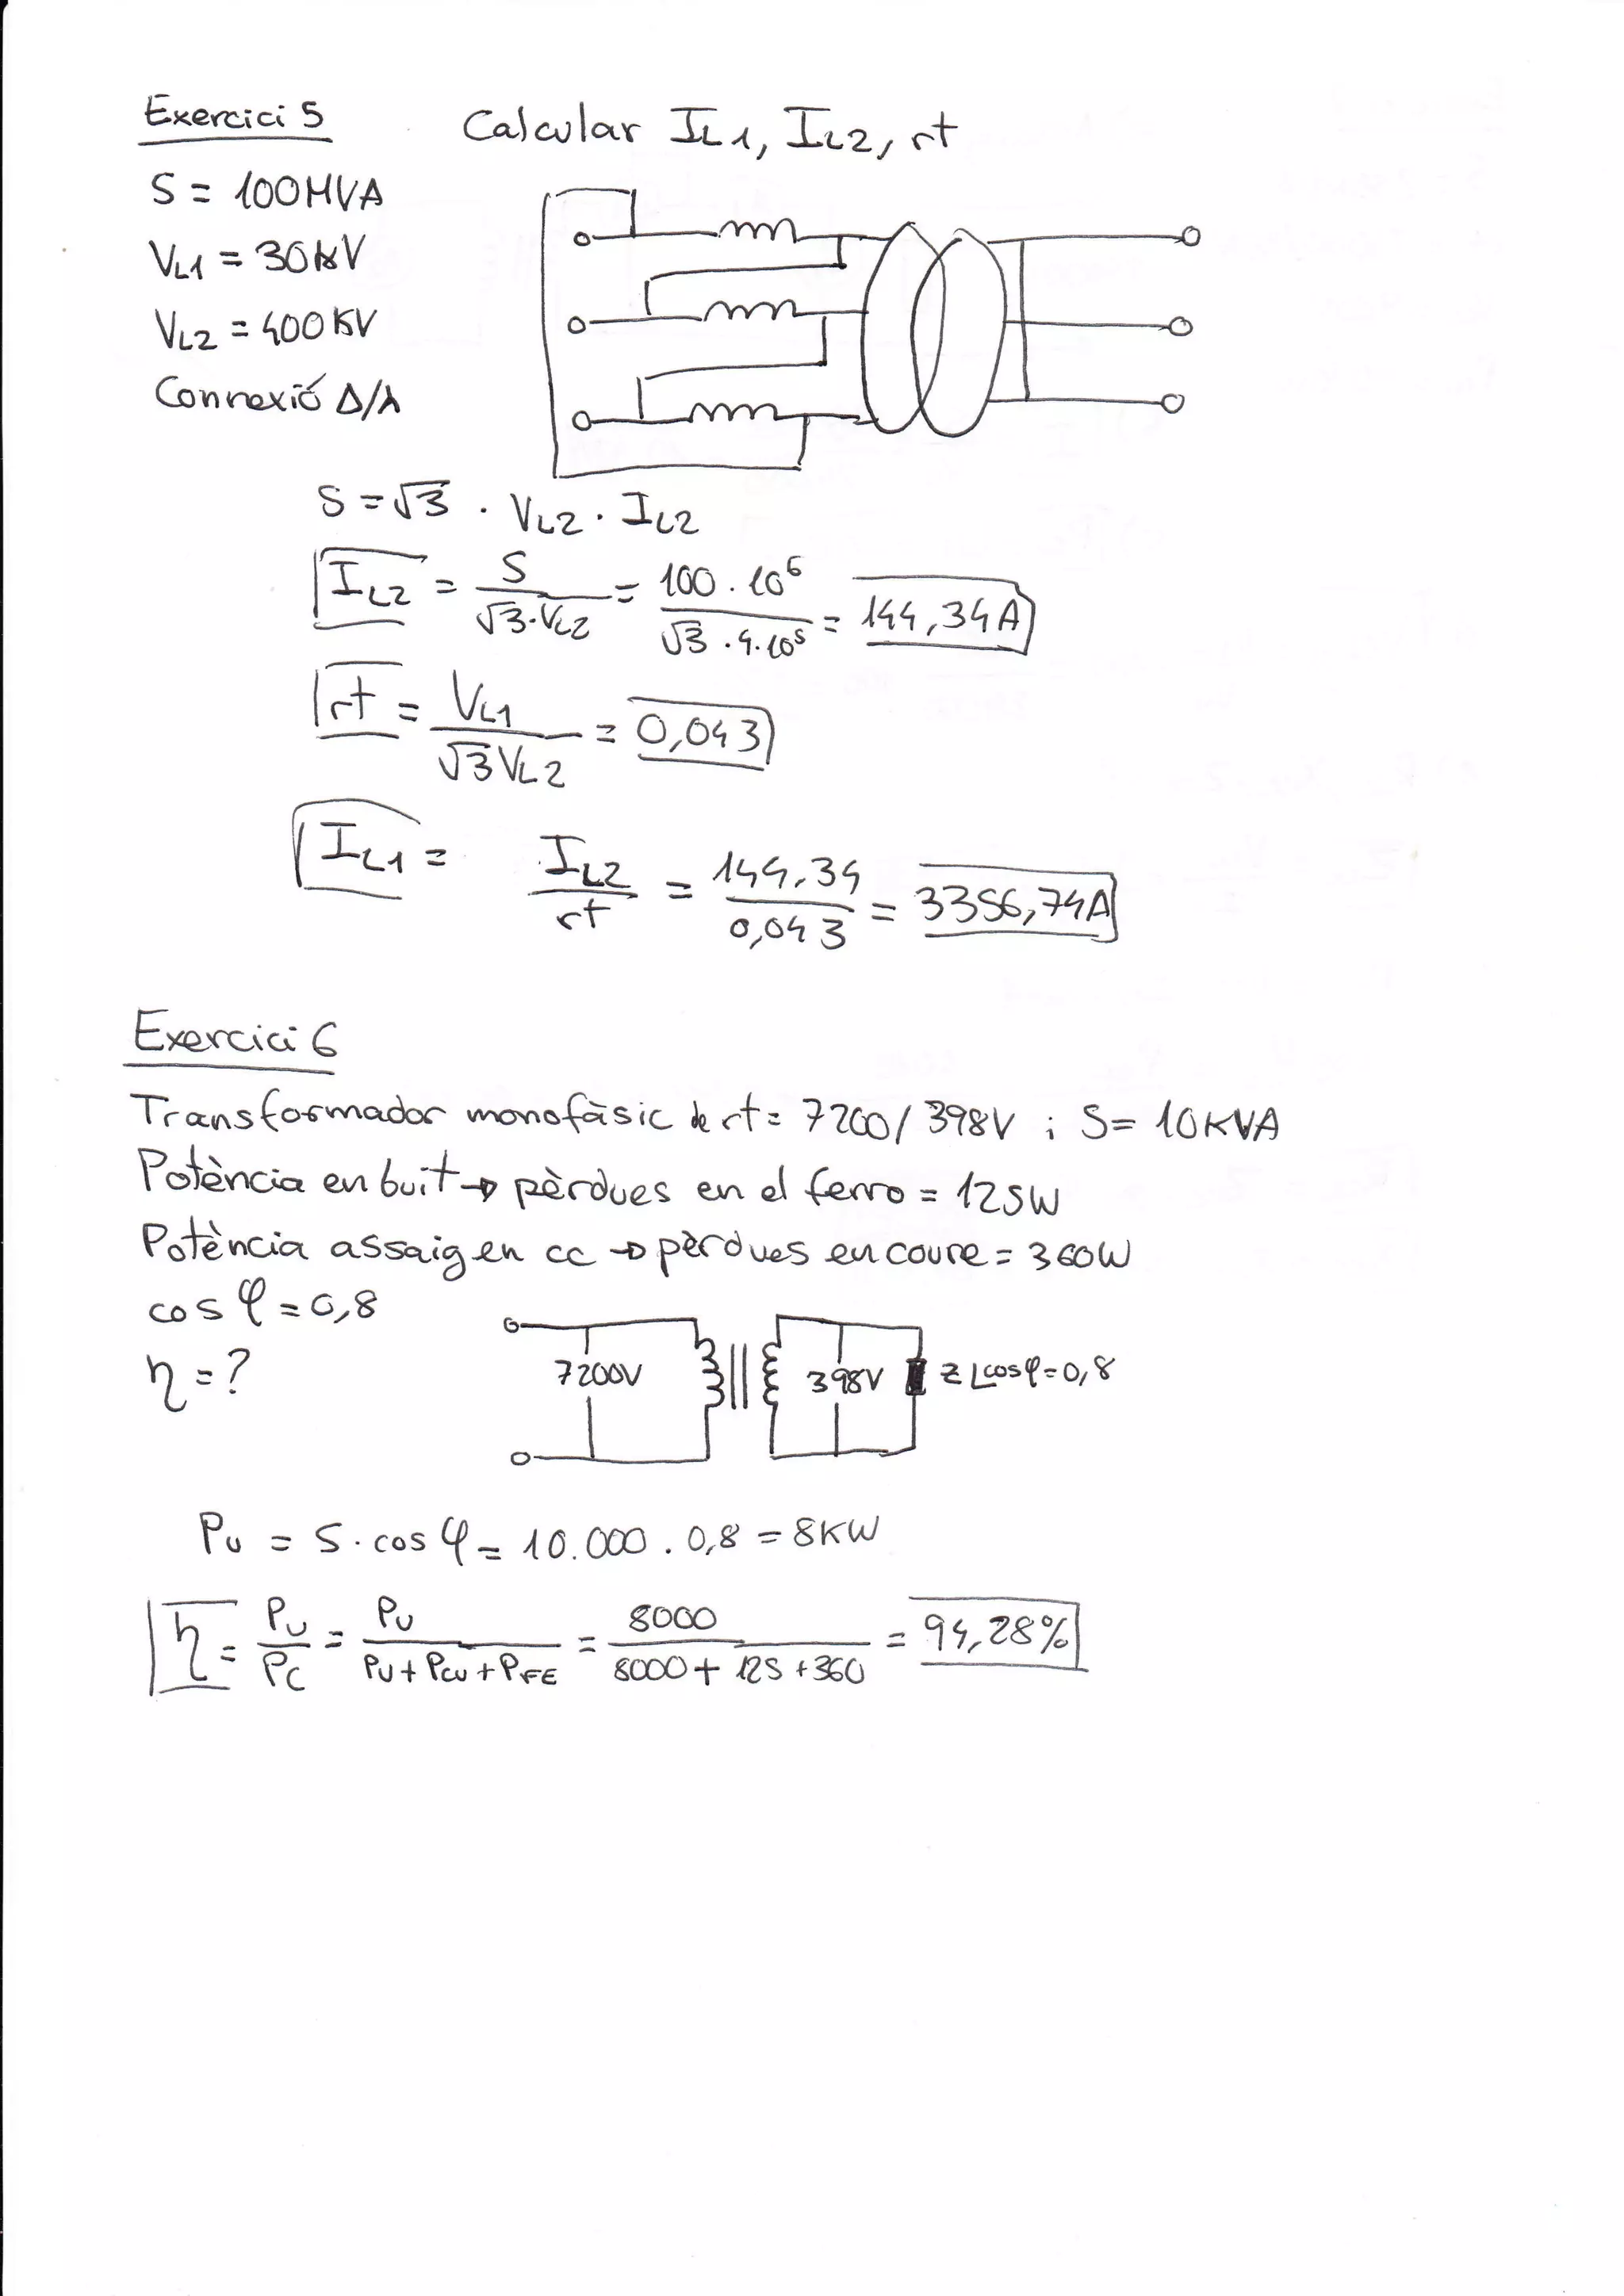 Exercici 5
Calcular IL1, IL2, rt
S = 100MVA
VL1 = 30kV
VL2 = 400KV
Connexió Δ/⅄
S = √3 · VL2 · IL2
IL2 = S / √3·VL2 = 100 · 10⁶ / √3 · 4·10⁵ = 144,34A
rt = VL1 / √3VL2 = 0,043
IL1 = IL2 / rt = 144,34 / 0,043 = 3356,74A
Exercici 6
Transformador monofàsic de rt = 7200/398V i S = 10KVA
Potència en buit → pèrdues en el ferro = 125W
Potència assaig en cc → pèrdues en coure = 360W
cos φ = 0,8
η = ?
7200V
398V
Z ∟cosφ=0,8
Pu = S · cos φ = 10.000 · 0,8 = 8KW
η = Pu / Pc = Pu / Pu + Pcu + PFE = 8000 / 8000 + 125 + 360 = 94,28%